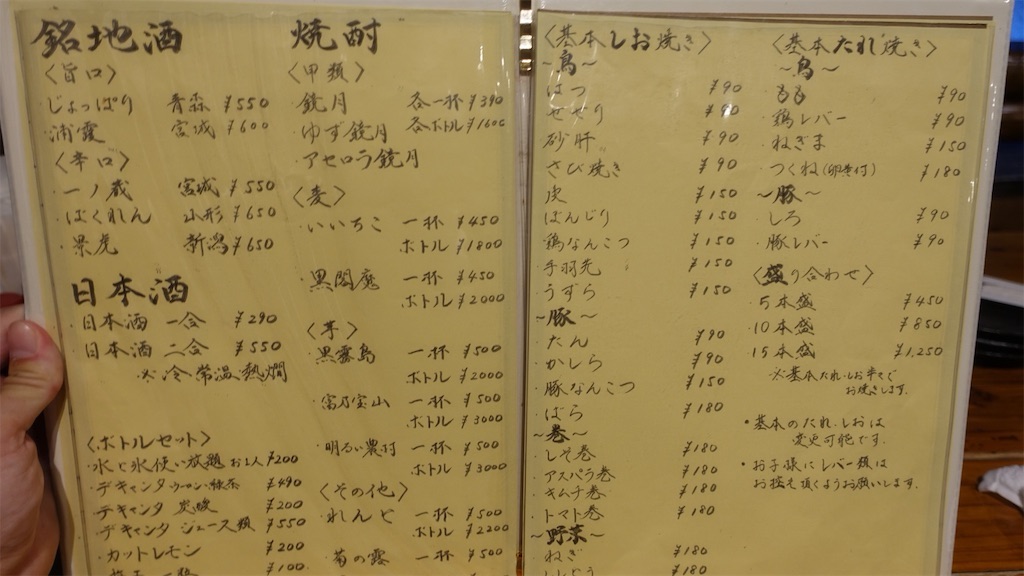 銘地酒
〈旨口〉
・じょっぱり 青森 ¥550
・浦霞 宮城 ¥600
〈辛口〉
・一ノ蔵 宮城 ¥550
・ばくれん 山形 ¥650
・景虎 新潟 ¥650
日本酒
・日本酒 一合 ¥290
・日本酒 二合 ¥550
※冷・常温・熱燗
〈ボトルセット〉
・水と氷使い放題 お1人 ¥200
・デキャンタ ウーロン・緑茶 ¥490
・デキャンタ 炭酸 ¥200
・デキャンタ ジュース類 ¥550
・カットレモン ¥200
¥100
焼酎
〈甲類〉
・鏡月 各一杯 ¥390
・ゆず鏡月 各ボトル ¥1600
・アセロラ鏡月
〈麦〉
・いいちこ 一杯 ¥450
ボトル ¥1800
・黒閻魔 一杯 ¥450
ボトル ¥2000
〈芋〉
・黒霧島 一杯 ¥500
ボトル ¥2000
・富乃宝山 一杯 ¥500
ボトル ¥3000
・明るい農村 一杯 ¥500
ボトル ¥3000
〈その他〉
・れんと 一杯 ¥500
ボトル ¥2200
・菊の露 一杯 ¥500
〈基本しお焼き〉
~鳥~
はつ ¥90
せせり ¥90
砂肝 ¥90
さび焼き ¥90
皮 ¥150
ぼんじり ¥150
鶏なんこつ ¥150
手羽先 ¥150
うずら ¥150
~豚~
・たん ¥90
・かしら ¥90
・豚なんこつ ¥150
・ばら ¥180
~巻~
・しそ巻 ¥180
・アスパラ巻 ¥180
・キムチ巻 ¥180
・トマト巻 ¥180
~野菜~
ねぎ ¥180
ししとう ¥180
〈基本たれ焼き〉
~鳥~
・もも ¥90
・鶏レバー ¥90
・ねぎま ¥150
・つくね(卵黄付) ¥180
~豚~
・しろ ¥90
・豚レバー ¥90
〈盛り合わせ〉
・5本盛 ¥450
・10本盛 ¥850
・15本盛 ¥1,250
※基本たれ・しお半々で
お焼きします。
・基本のたれ・しおは
変更可能です。
・お子様にレバー類は
お控え頂くようお願いします。